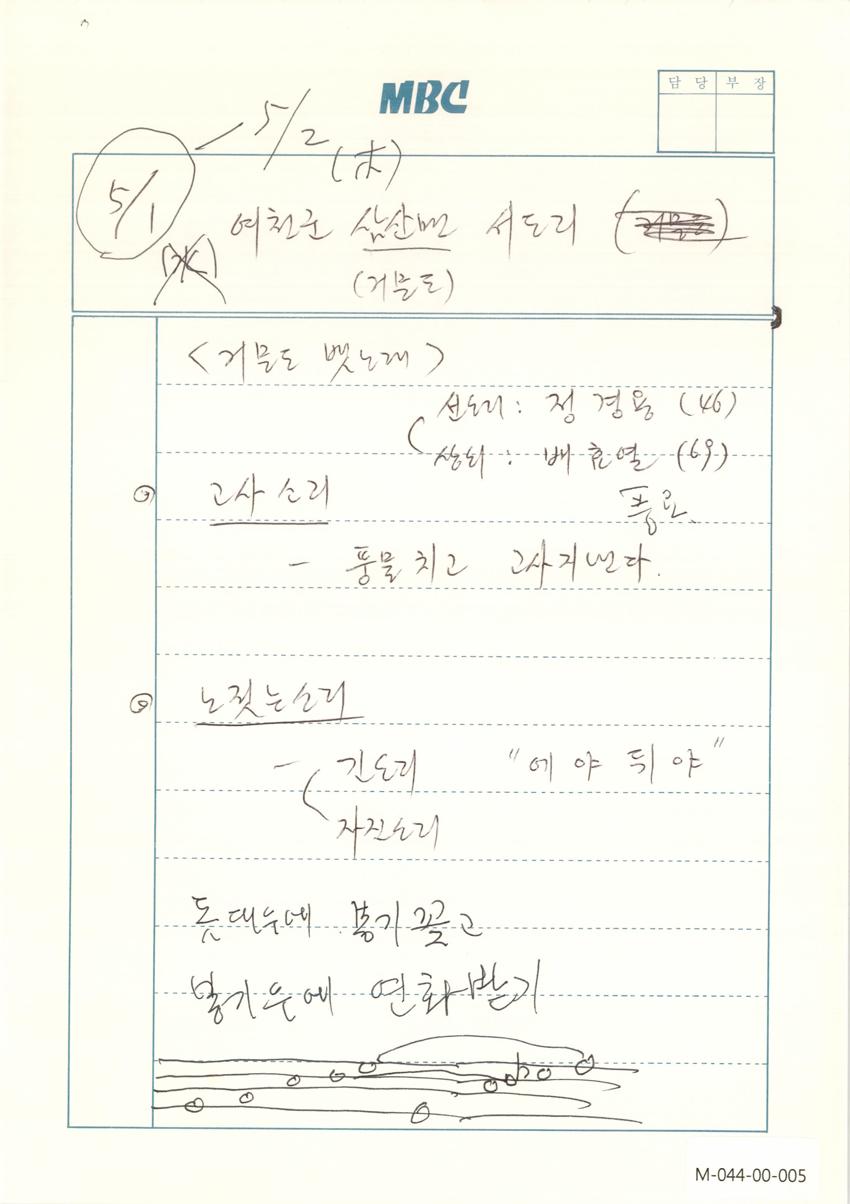 MBC
담 당 부 장
5/2 (木)
5/1
여천군 삼산면 서도리
(거문도)
<거문도 뱃노래>
선소리 : 정경용 (46)
상쇠 : 배효열 (69)
① 고사소리
풍로
- 풍물치고 고사지낸다.
② 노젓는소리
- 긴소리 "에 야 뒤 야"
자진소리
돛대우에 봉기꽂고
봉기우에 연화받기
b
M-044-00-005